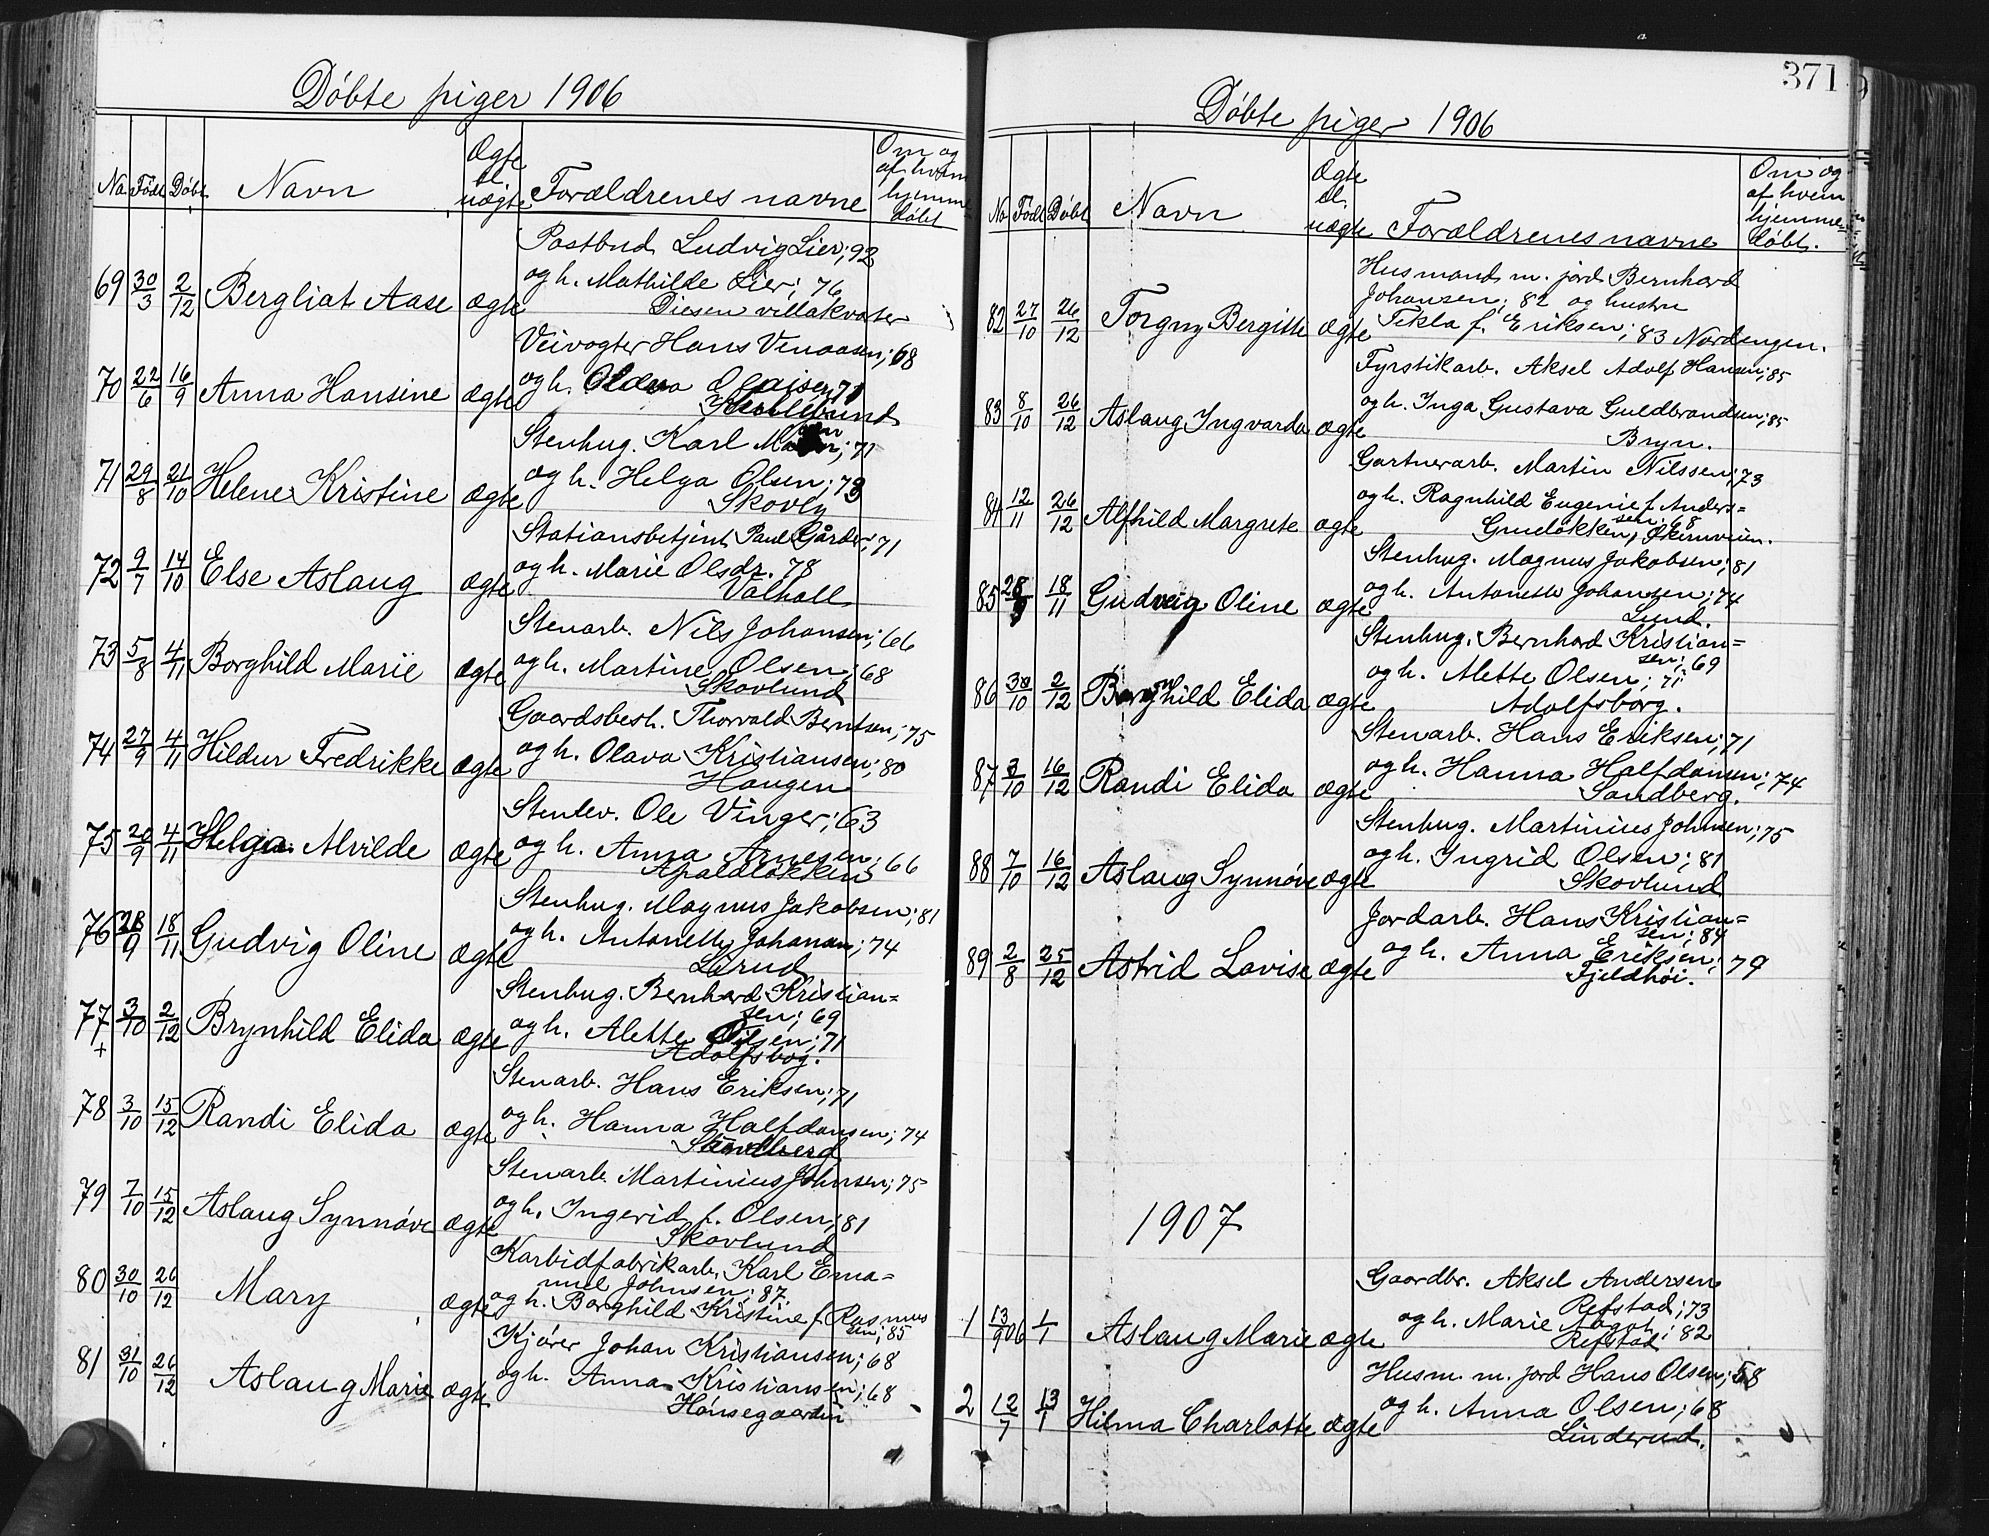 Døbte piger 1906
No Født Døbt Navn Ægte el. uægte Forældrenes navne Om og af hvem hjemme døbt
Postbud Ludvig Lier; 92
69 30/3 2/12 Bergliat Aase ægte og h. Mathilde Lier; 76
Diesen villakvarter
Veivogter Hans Venaasen; 68
70 22/6 16/9 Anna Hansine ægte og h. Olaisen 71
Stenhug. Karl 71
71 29/8 21/10 Helene Kristine ægte og h. Helga Olsen; 73
Skovly
Stationsbetjent Paul Gårder; 71
72 9/7 14/10 Else Aslaug ægte og h. Marie Olsdr. 78
Valhall
Stenarb. Nils Johansen; 66
73 5/8 4/11 Borghild Marie ægte og h. Martine Olsen; 68
Skovlund
Gaardsbest. Thorvald Berntsen; 75
74 27/9 4/11 Hildur Fredrikke ægte og h. Olava Kristiansen; 80
Haugen
Stenlev. Ole Vinger; 63
75 20/9 4/11 Helga Alvilde ægte og h. Anna Arnesen; 66
Apaldløkken
Stenhug. Magnus Jakobsen; 81
76 28/9 18/11 Gudvig Oline ægte og h. Antonette Johansen; 74
Stenhug. Bernhard Kristian=
sen; 69
77 3/10 2/12 Brynhild Elida ægte og h. Alette Olsen; 71
+ Adolfsbog.
Stenarb. Hans Eriksen; 71
78 3/10 15/12 Randi Elida ægte og h. Hanna Halfdansen; 74
Sandberg
Stenarb. Martinius Johnsen; 75
79 7/10 15/12 Aslaug Synnøve ægte og h. Ingerid f. Olsen; 81
Skovlund
Karbidfabrikarb. Karl Ema=
nuel Johnsen; 87
80 30/10 26/12 Mary ægte og h. Borghild Kristine f. Rasmus
sen; 85
Kjører Johan Kristiansen; 68
81 31/10 26/12 Aslaug Marie ægte og h. Anna Kristiansen; 68
Hønsegaarden
371
Døbte piger 1906
No Født Døbt Navn Ægte el. uægte Forældrenes navne Om og af hvem hjemme= døbt.
Husmand m. jord Bernhard
Johansen; 82 og hustru
82 27/10 26/12 Torgny Bergitte ægte Tekla f. Eriksen; 83 Nordengen.
Fyrstikarb. Aksel Adolf Hansen; 85
83 8/10 26/12 Aslaug Ingvarda ægte og h. Inga Gustava Guldbrandsen; 85
Bryn.
Gartnerarb. Martin Nilssen; 73
84 12/11 26/12 Alfhild Margrete ægte og h. Ragnhild Eugenie f. Anders=
sen; 68
Grudløkken, Økernveien.
Stenhug. Magnus Jakobsen; 81
85 28/9 18/11 Gudveig Oline ægte og h. Antonette Johansen; 74
Lund.
Stenhug. Bernhard Kristian=
sen; 69
86 30/10 2/12 Brynhild Elida ægte og h. Alette Olsen; 71
Adolfsborg.
Stenarb. Hans Eriksen; 71
87 3/10 16/12 Randi Elida ægte og h. Hanna Halfdansen; 74
Sandberg.
Stenhug. Martinius Johnsen; 75
88 7/10 16/12 Aslaug Synnøve ægte og h. Ingrid Olsen; 81
Skovlund
Jordarb. Hans Kristian=
sen; 84
89 2/8 25/12 Astrid Lovise ægte og h. Anna Eriksen; 79
Fjeldhøi.
1907
Gaardbr. Aksel Andersen
Refstad; 73
1 13/9 06 1/1 Aslaug Marie ægte og h. Marie Aagot; 82
Refstad
Husm. m. jord Hans Olsen; 68
2 12/7 13/1 Hilma Charlotte ægte og h. Anna Olsen; 68
Linderud.